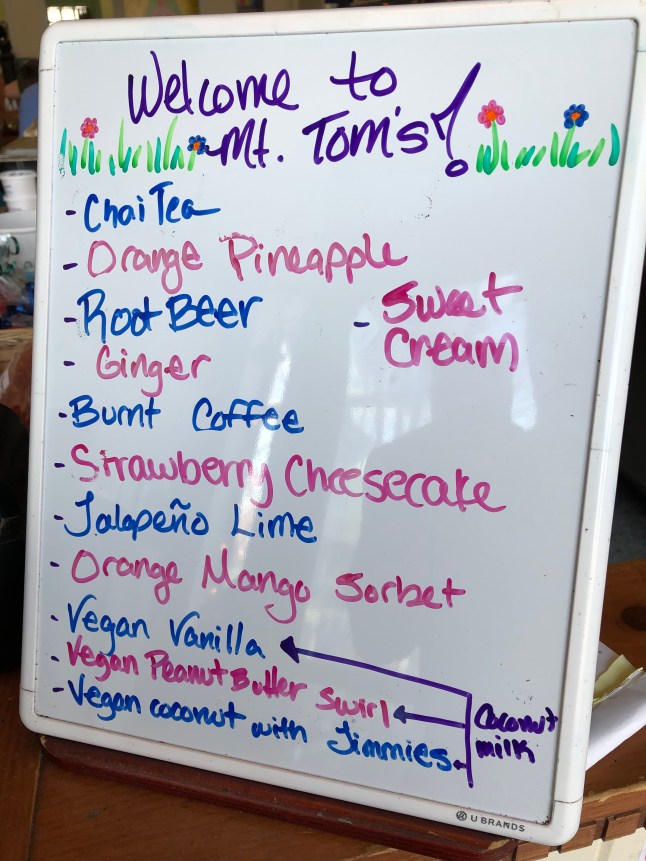 Welcome to
Mt. Tom's!
- Chai Tea
- Orange Pineapple
- Root Beer
- Sweet
Cream
- Ginger
- Burnt Coffee
- Strawberry Cheesecake
- Jalapeño Lime
- Orange Mango Sorbet
- Vegan Vanilla
- Vegan Peanut Butter Swirl
- Vegan coconut with Jimmies
Coconut
milk
U BRANDS